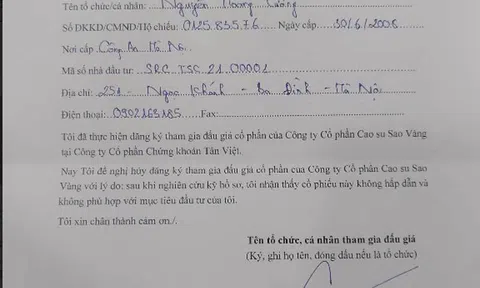 Tên tổ chức/cá nhân: Nguyễn Hoàng Cương
Số ĐKKD/CMND/Hộ chiếu: 0125.835.76 Ngày cấp 30/6/2006
Nơi cấp Công An Hà Nội
Mã số nhà đầu tư: SRC TSC 21.00002
Địa chỉ: 251 - Ngọc Khánh - Ba Đình - Hà Nội
Điện thoại: 0902163185 Fax:
Tôi đã thực hiện đăng ký tham gia đấu giá cổ phần của Công ty Cổ phần Cao su Sao Vàng
tại Công ty Cổ phần Chứng khoán Tân Việt.
Nay Tôi đề nghị hủy đăng ký tham gia đấu giá cổ phần của Công ty Cổ phần Cao su Sao
Vàng với lý do: sau khi nghiên cứu kỹ hồ sơ, tôi nhận thấy cổ phiếu này không hấp dẫn và
không phù hợp với mục tiêu đầu tư của tôi.
Tôi xin chân thành cám ơn./.
Tên tổ chức, cá nhân tham gia đấu giá
(Ký, ghi họ tên, đóng dấu nếu là tổ chức)